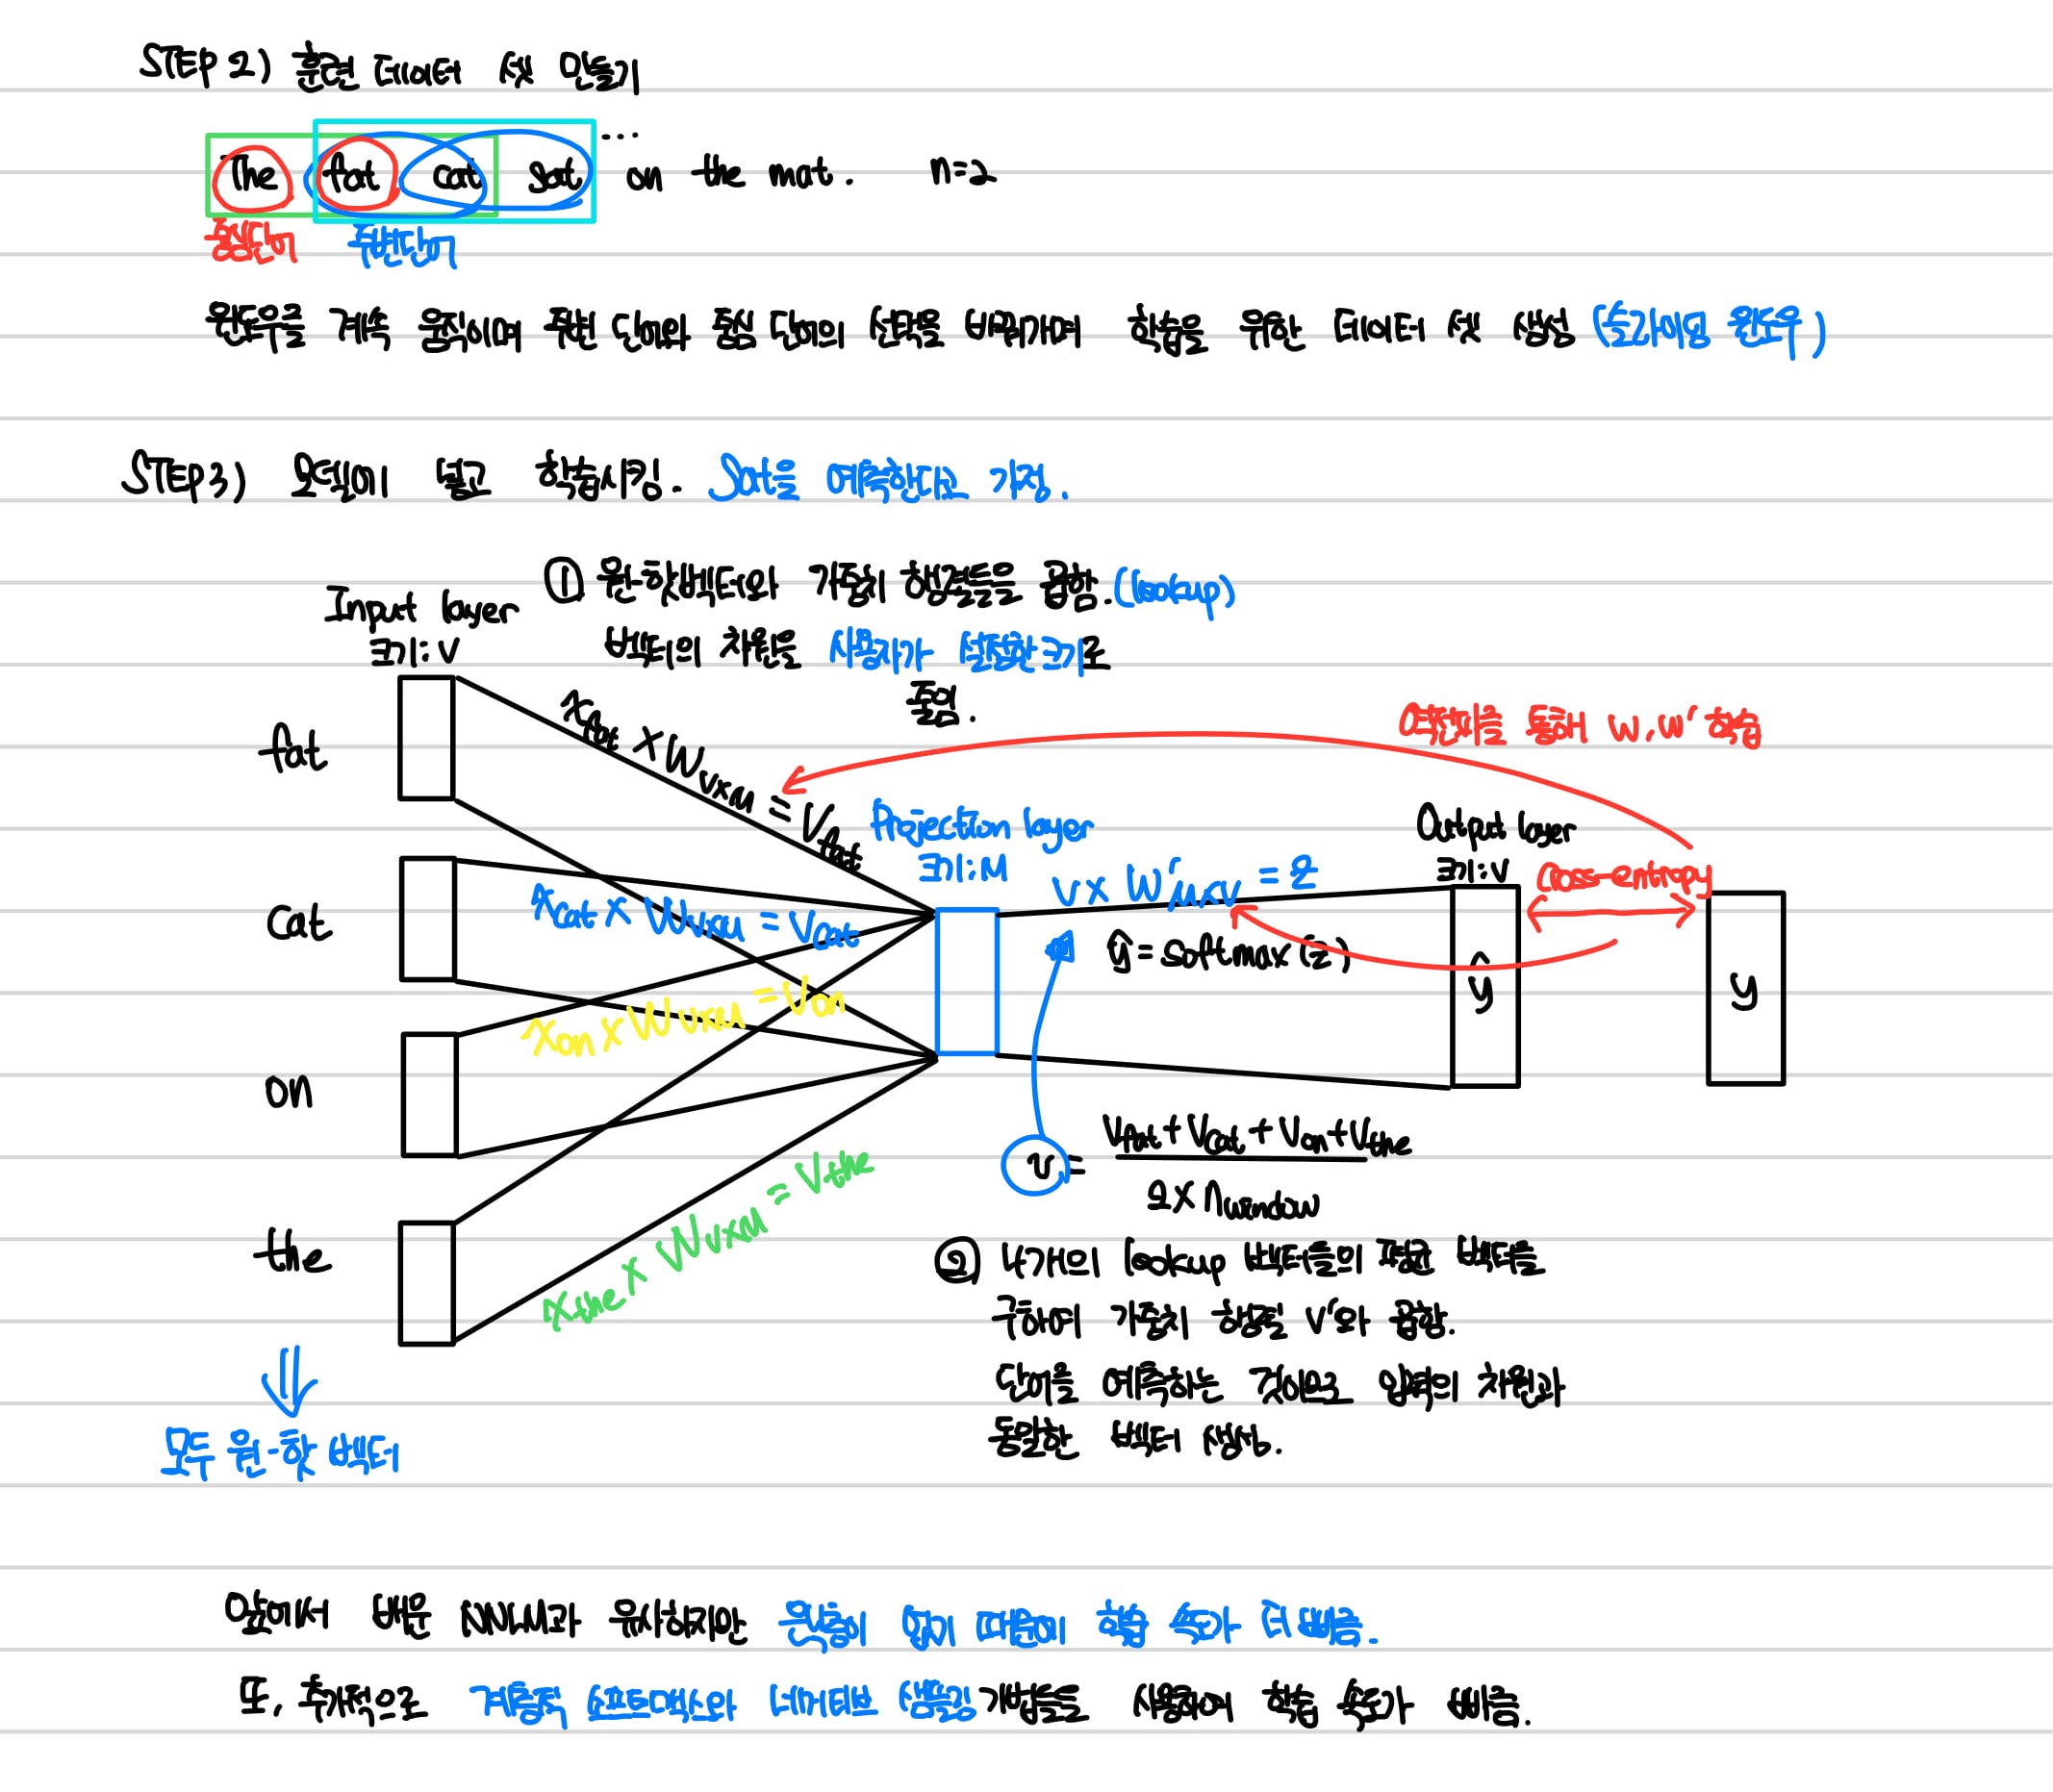 STEP 2) 훈련 데이터 셋 만들기
The fat cat sat ... on the mat. n=2
중심단어 주변단어
윈도우를 계속 움직이며 주변 단어와 중심 단어의 선택을 바꿔가며 학습을 위한 데이터 셋 생성 (슬라이딩 윈도우)
STEP3) 모델에 넣고 학습시킴. Sat을 예측한다고 가정.
① 원-핫벡터와 가중치 행렬들을 곱함. (lookup)
벡터의 차원을 사용자가 설정한 크기로
줄임.
Input layer
크기: V
fat
cat
on
the
x_fat × W_V×M = V_fat
x_cat × W_V×M = V_cat
x_on × W_V×M = V_on
x_the × W_V×M = V_the
모두 원-핫 벡터
Projection layer
크기: M
v × W'_M×V = z
ŷ = softmax(z)
역전파를 통해 W, W' 학습
Output layer
크기: V
Cross-entropy
ŷ
y
v = V_fat + V_cat + V_on + V_the
2 × n_window
② 4개의 lookup 벡터들의 평균 벡터를
구하여 가중치 행렬 V'와 곱함.
단어를 예측하는 것이므로 입력의 차원과
동일한 벡터 생성.
앞에서 배운 NNLM과 유사하지만 은닉층이 없기 때문에 학습 속도가 더 빠름.
또, 추가적으로 계층적 소프트맥스와 네거티브 샘플링 기법들을 사용하여 학습 속도가 빠름.